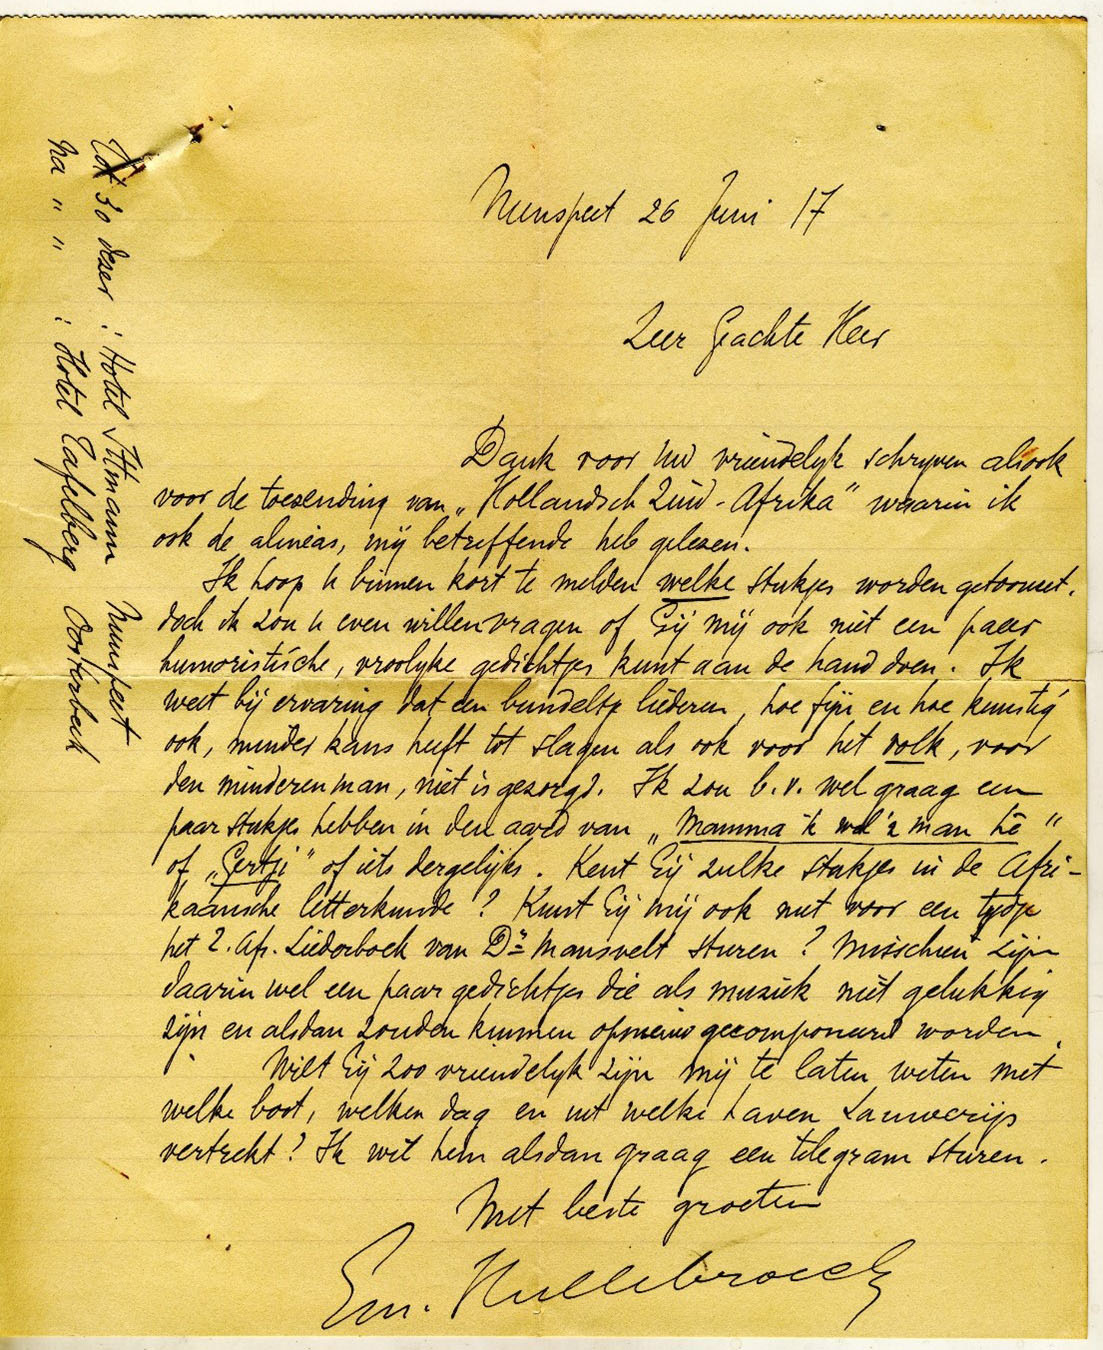 Nunspeet 26 Juni 17
Zeer Geachte Heer
Dank voor Uw vriendelyk schryven alsook
voor de toezending van „Hollandsch Zuid-Afrika" waarin ik
ook de alineas, mij betreffende heb gelezen.
Ik hoop U binnen kort te melden welke stukjes worden getoonzet.
doch ik zou U even willen vragen of Gij mij ook niet een paar
humoristische, vroolyke gedichtjes kunt aan de hand doen. Ik
weet bij ervaring dat een bundeltje liederen, hoe fijn en hoe kunstig
ook, minder kans heeft tot slagen als ook voor het volk, voor
den minderen man, niet is gezorgd. Ik zou b.v. wel graag een
paar stukjes hebben in den aard van „Mamma 'k wil 'n man hê"
of „Gertji" of iets dergelijks. Kent Gij zulke stukjes in de Afri-
kaansche letterkunde? Kunt Gij mij ook niet voor een tydje
het Z. Afr. Liederboek van Dr Mansvelt sturen? Misschien zijn
daarin wel een paar gedichtjes die als muziek niet gelukkig
zijn en alsdan zouden kunnen opnieuw gecomponeerd worden.
Wilt Gij zoo vriendelyk zijn mij te laten weten met
welke boot, welken dag en uit welke haven Lauwerijs
vertrekt? Ik wil hem alsdan graag een telegram sturen.
Met beste groeten
Em. Hullebroeck
Tot 30 dezer : Hotel Ittmann Nunspeet
na " " : Hotel Tafelberg Oosterbeek